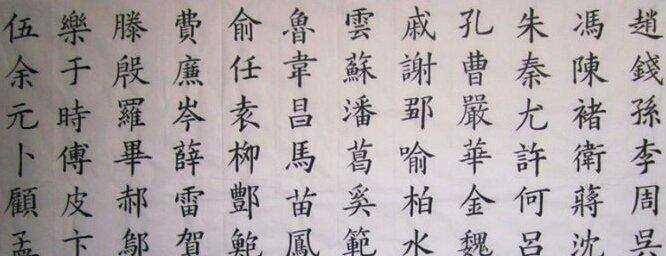 趙錢孫李周吳
馮陳褚衛蔣沈
朱秦尤許何呂
孔曹嚴華金魏
戚謝鄒喻柏水
雲蘇潘葛奚範
魯韋昌馬苗鳳
俞任袁柳酆鮑
費廉岑薛雷賀
滕殷羅畢郝鄔
樂于時傅皮卞
伍余元卜顧孟